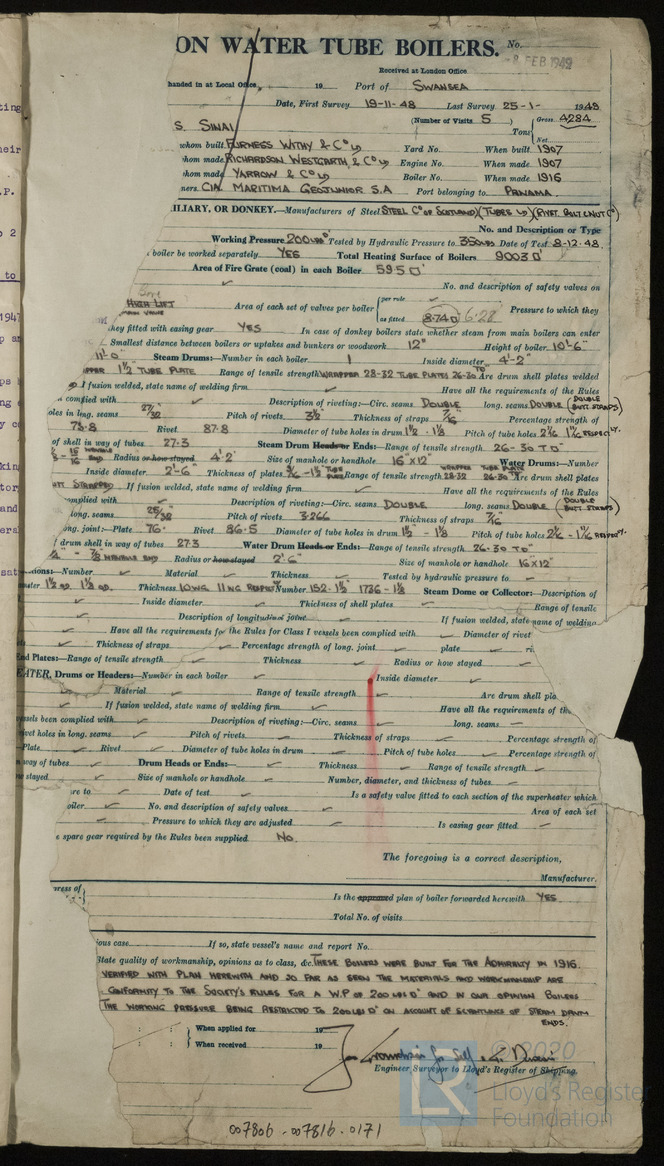 ON WATER TUBE BOILERS. No.
-8 FEB 1949
Received at London Office
handed in at Local Office, 19 Port of SWANSEA
Date, First Survey 19-11-48 Last Survey 25-1- 1949
S. SINAI (Number of Visits 5 Gross 4284
Tons
Net
whom built FURNESS WITHY & Co LD Yard No. When built 1907
whom made RICHARDSON WESTGARTH & Co LD Engine No. When made 1907
whom made YARROW & Co LD Boiler No. When made 1916
ners. CIA. MARITIMA GEOJUNIOR S.A Port belonging to PANAMA.
ILIARY, OR DONKEY.—Manufacturers of Steel STEEL Co OF SCOTLAND (TUBES LD) (RIVET BOLT & NUT Co)
No. and Description or Type
Working Pressure 200 LBS □" Tested by Hydraulic Pressure to 350 LBS Date of Test 8-12-48.
boiler be worked separately YES Total Heating Surface of Boilers 9003 □'
Area of Fire Grate (coal) in each Boiler 59.5 □'
No. and description of safety valves on
HIGH LIFT Area of each set of valves per boiler { per rule
as fitted 8.74 □" 6.28 Pressure to which they
hey fitted with easing gear YES In case of donkey boilers state whether steam from main boilers can enter
Smallest distance between boilers or uptakes and bunkers or woodwork 12" Height of boiler 10'-6"
11'-0" Steam Drums:—Number in each boiler 1 Inside diameter 4'-2"
1½" TUBE PLATE Range of tensile strength WRAPPER 28-32 TUBE PLATES 26-30 TO" Are drum shell plates welded
If fusion welded, state name of welding firm Have all the requirements of the Rules
complied with Description of riveting:—Circ. seams DOUBLE long. seams DOUBLE (DOUBLE BUTT STRAPS)
oles in long. seams 27/32 Pitch of rivets 3½ Thickness of straps 7/16"
73.8 Rivet 87.8 Diameter of tube holes in drum 1½ - 1⅛ Pitch of tube holes 2⅛ 1⅝ RESPECTLY.
of shell in way of tubes 27.3 Steam Drum Heads or Ends:—Range of tensile strength 26-30 TO"
Radius or how stayed 4'2" Size of manhole or handhole 16"X12" Water Drums:—Number
Inside diameter 2'-6" Thickness of plates Range of tensile strength WRAPPER 28-32 TUBE PLATE 26-30 Are drum shell plates
BUTT STRAPPED If fusion welded, state name of welding firm Have all the requirements of the Rules
omplied with Description of riveting:—Circ. seams DOUBLE long. seams DOUBLE (DOUBLE BUTT STRAPS)
long. seams 25/32 Pitch of rivets 3.266 Thickness of straps 7/16
ng. joint:—Plate 76. Rivet 86.5 Diameter of tube holes in drum 1½ - 1⅛ Pitch of tube holes
drum shell in way of tubes 27.3 Water Drum Heads or Ends:—Range of tensile strength 26-30 TO"
Radius or how stayed 2'6" Size of manhole or handhole 16"X12"
Number Material Thickness Tested by hydraulic pressure to
1½ OD. 1⅛ OD. Thickness 10WG 11WG Number 152-1½ 1736-1⅛ Steam Dome or Collector:—Description of
Inside diameter Thickness of shell plates Range of tensile
Description of longitudinal joint If fusion welded, state name of welding
Have all the requirements for the Rules for Class I vessels been complied with Diameter of rivet
Thickness of straps Percentage strength of long. joint plate
End Plates:—Range of tensile strength Thickness Radius or how stayed
EATER, Drums or Headers:—Number in each boiler Inside diameter
Material Range of tensile strength Are drum shell pla
If fusion welded, state name of welding firm Have all the requirements of the
essels been complied with Description of riveting:—Circ. seams long. seams
rivet holes in long. seams Pitch of rivets Thickness of straps Percentage strength of
Plate Rivet Diameter of tube holes in drum Pitch of tube holes Percentage strength of
way of tubes Drum Heads or Ends:— Thickness Range of tensile strength
w stayed Size of manhole or handhole Number, diameter, and thickness of tubes
re to Date of test Is a safety valve fitted to each section of the superheater which
oiler No. and description of safety valves Area of each set
Pressure to which they are adjusted Is easing gear fitted
e spare gear required by the Rules been supplied No.
The foregoing is a correct description,
Manufacturer.
Is the approved plan of boiler forwarded herewith YES
Total No. of visits
ious case If so, state vessel's name and report No.
State quality of workmanship, opinions as to class, &c. THESE BOILERS WERE BUILT FOR THE ADMIRALTY IN 1916.
VERIFIED WITH PLAN HEREWITH AND SO FAR AS SEEN THE MATERIALS AND WORKMANSHIP ARE
CONFORMITY TO THE SOCIETY'S RULES FOR A W.P OF 200 LBS □" AND IN OUR OPINION BOILERS
THE WORKING PRESSURE BEING RESTRICTED TO 200 LBS □" ON ACCOUNT OF SCANTLINGS OF STEAM DRUM
ENDS.
When applied for 19
When received 19
Engineer Surveyor to Lloyd's Register of Shipping.
© 2020
LR Lloyd's Register
Foundation
007806-007816-0171